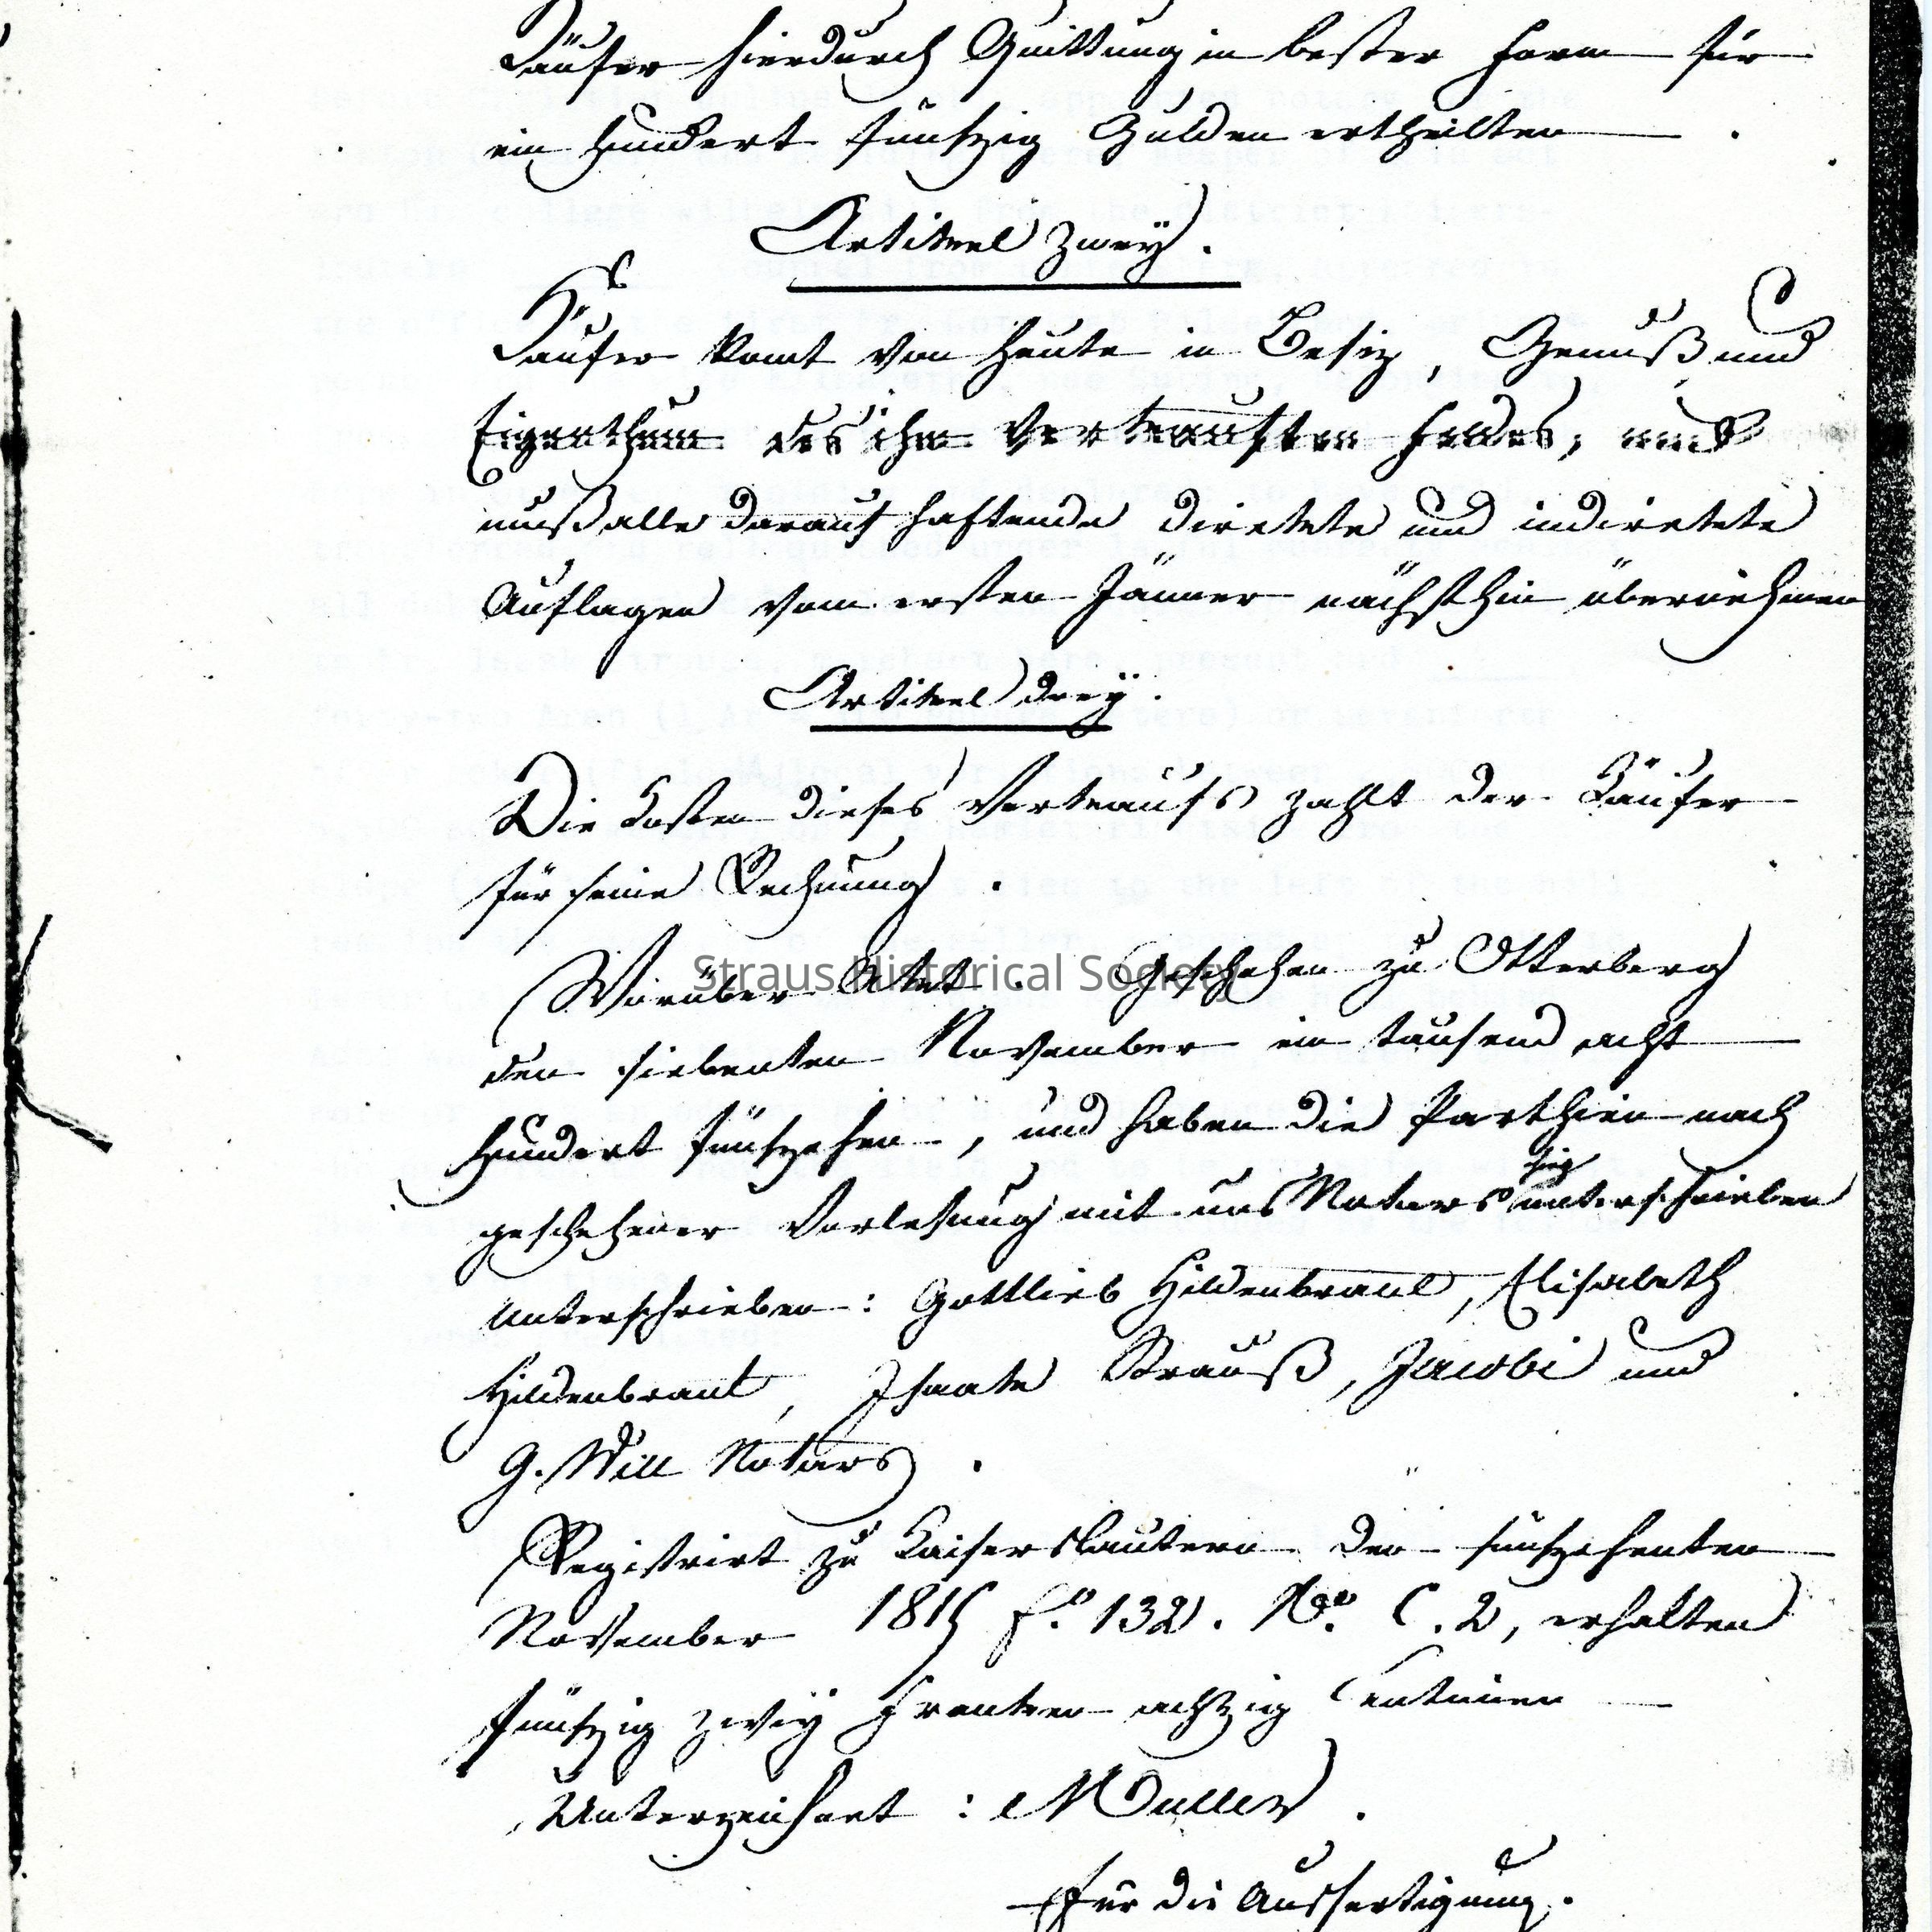 Käufer hierdurch Quittung in bester Form für
ein Hundert fünfzig Gulden ertheilten.
Artikel zwey.
Käufer komt von heute in Besiz, Genuß und
Eigenthum des ihm verkauften Feldes, und
muß alle darauf haftende direkte und indirekte
Auflagen vom ersten Jänner nächsthin übernehmen
Artikel drey.
Die Kosten dieses Verkaufs zahlt der Käufer
für seine Rechnung.
Worüber Akt. Geschehen zu Otterberg
Straus Historical Society
den siebenten November ein tausend acht
Hundert fünfzehen, und haben die Parthien nach
geschehener Vorlesung mit uns Notars unterschrieben
Unterschrieben: Gottlieb Hildenbrant, Elisabeth
Hildenbrant, Isaak Strauß, Jacobi und
G. Will Notars.
Registrirt zu Kaiserslautern den fünfzehenten
November 1815 f.º 132. Vº. C. 2, erhalten
fünfzig zwey Franken achtzig Centimen
Unterzeichnet: Muller.
Für die Ausfertigung.